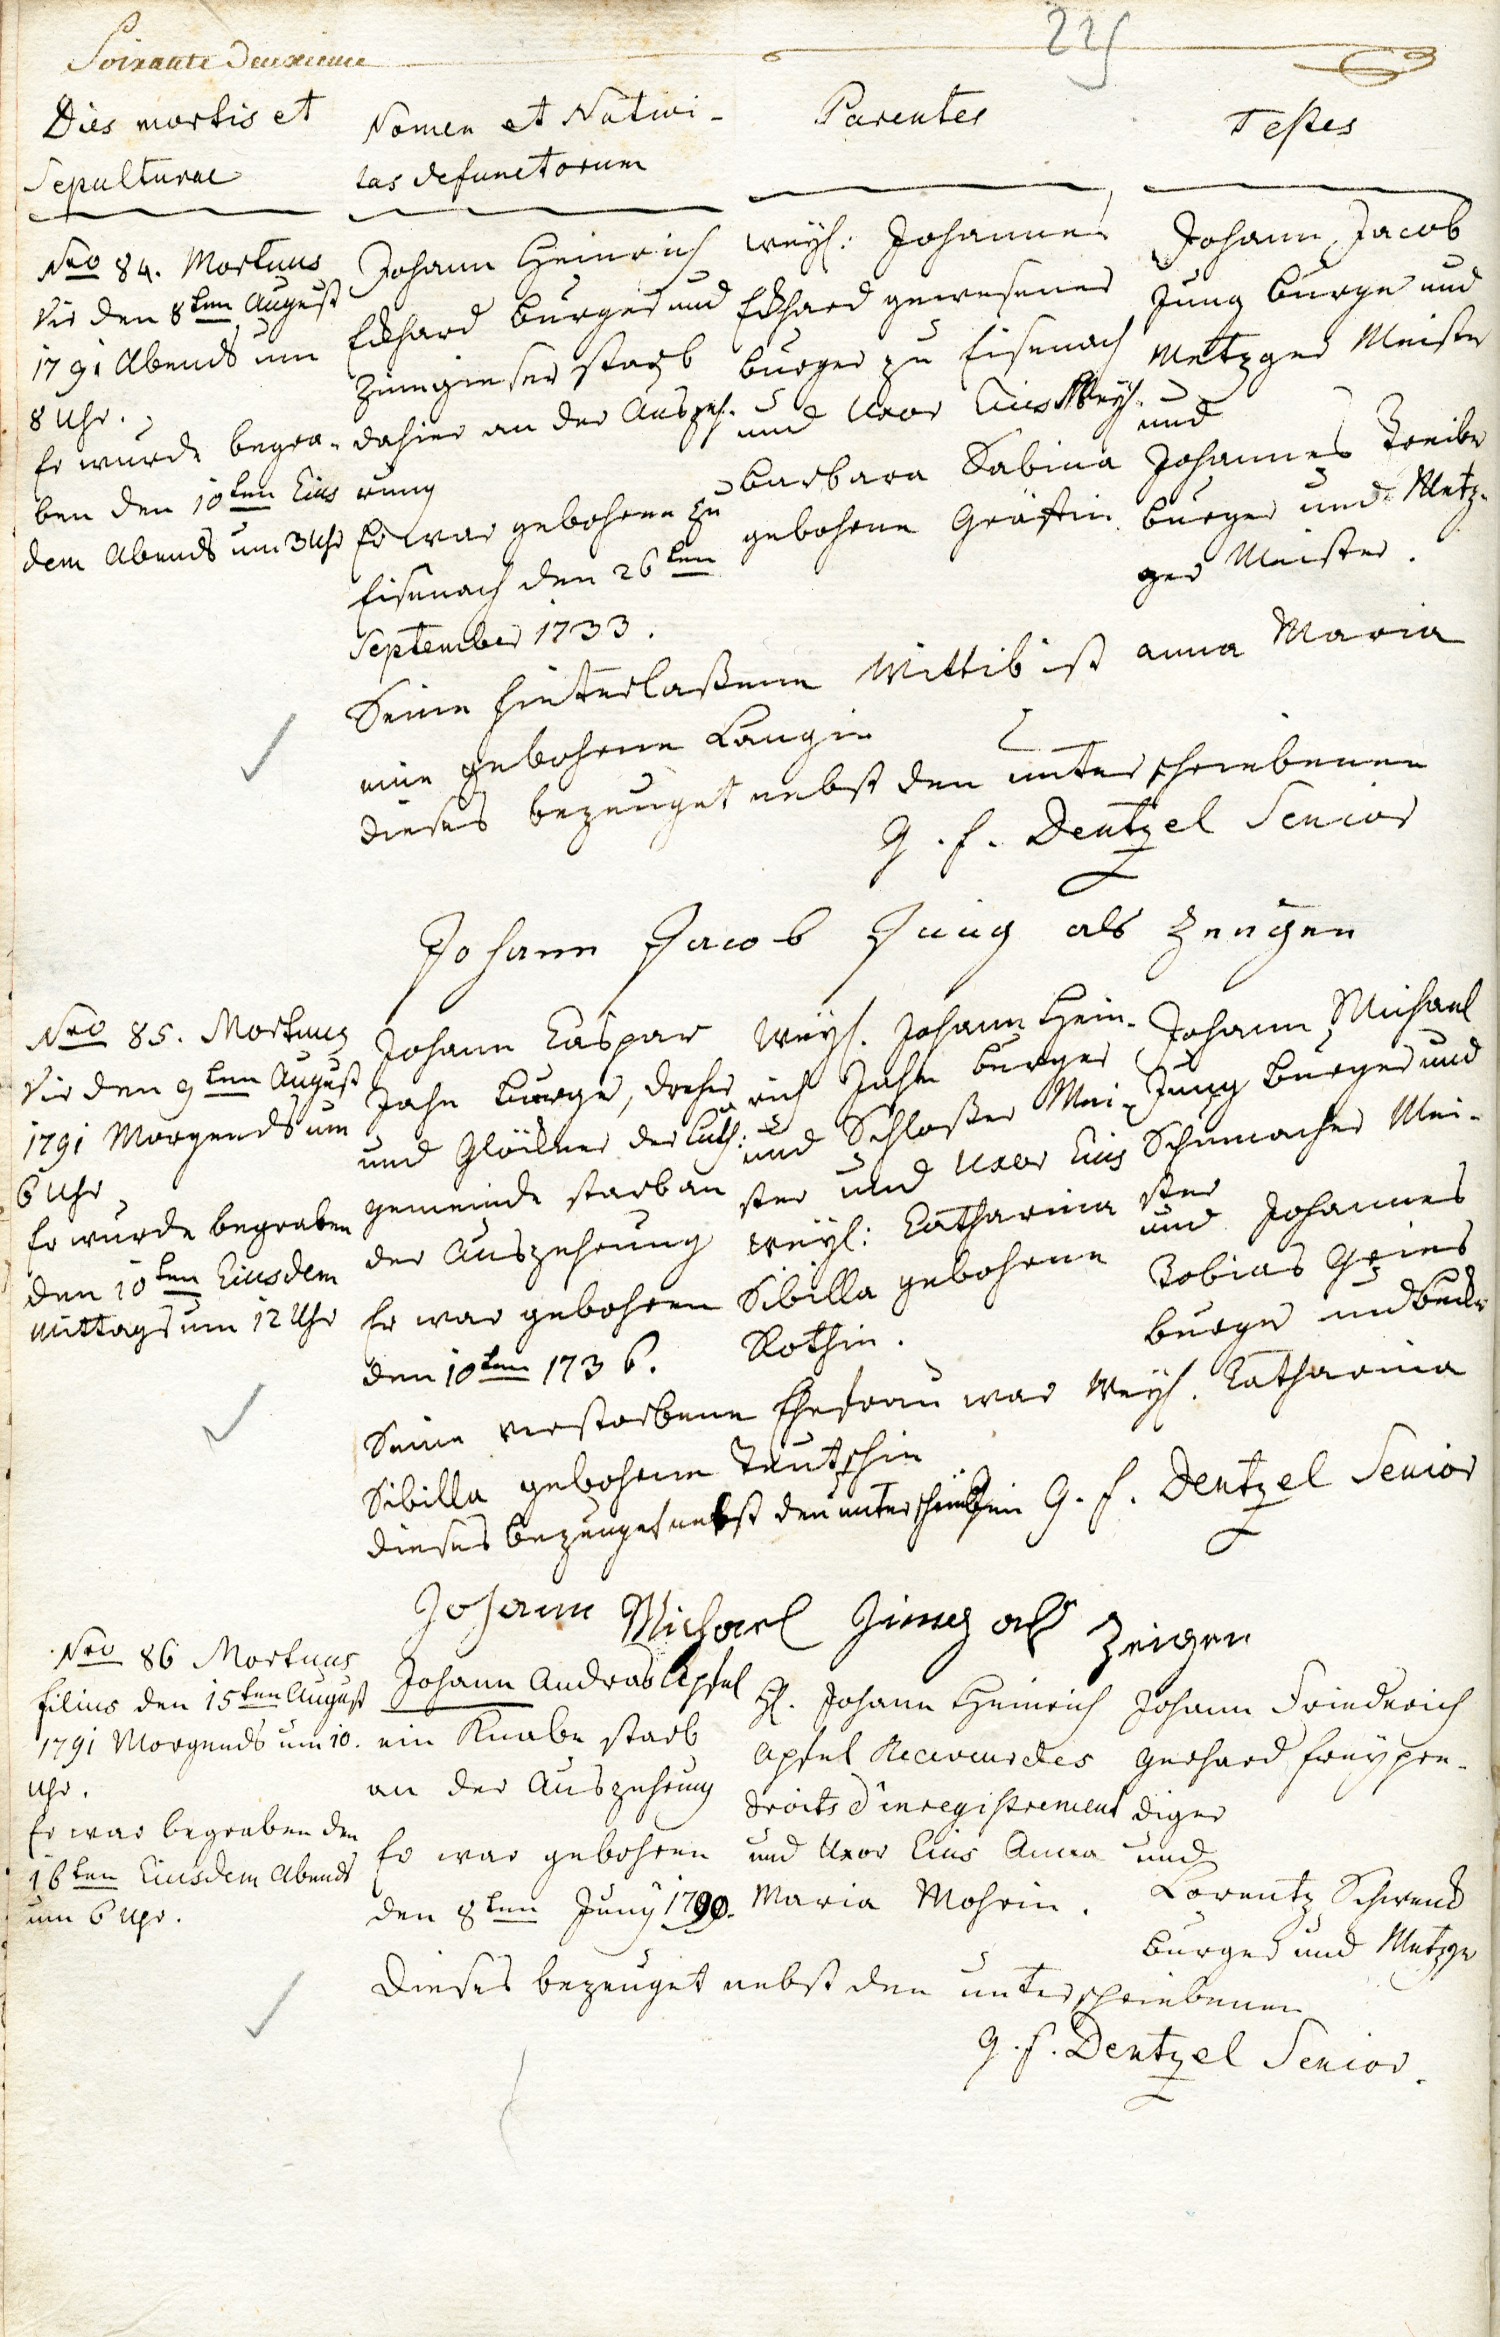 Soixante Deuxieme
225
Dies mortis et
Sepulturae
Nomen et Nativi-
tas defunctorum
Parentes
Testes
Nro 84. Mortuus
Vir den 8ten August
1791 Abends um
8 Uhr.
Er wurde begra-
ben den 10ten Eius
dem Abends um 3 Uhr
Johann Heinrich
Eckhard burger und
Zinngieser starb
dahier an der Auszeh-
rung
Er war gebohren zu
Eisenach den 26ten
September 1733.
weyl: Johannes
Eckhard gewesener
burger zu Eisenach
und Uxor Eius Weyl.
barbara Sabina
gebohrne Gräffin.
Johann Jacob
Jung burger und
Metzger Meister
und
Johannes Treiber
burger und Metz-
ger Meister.
Seine hinterlaßene Wittib ist anna Maria
eine gebohrne Langin
dieses bezeuget nebst den unterschriebenen
G. F. Dentzel Senior
Johann Jacob Jung als Zeugen
Nro 85. Mortuus
Vir den 9ten August
1791 Morgends um
6 Uhr
Er wurde begraben
den 10ten Eiusdem
Mittags um 12 Uhr
Johann Caspar
Jahn burger, dreher
und Glöckner der Luth:
gemeinde starb an
der Auszehrung
Er war gebohren
den 10ten 1736.
Weyl. Johann Hein-
rich Jahn burger
und Schloßer Mei-
ster und Uxor Eius
Weyl: Catharina
Sibilla gebohrne
Rothin.
Johann Michael
Jung burger und
Schumacher Mei-
ster
und Johannes
Tobias Gries
burger und beker
Seine verstorbene Ehefrau war Weyl. Catharina
Sibilla gebohrne Teutschin
dieses bezeuget nebst den unterschriebenen G. F. Dentzel Senior
Johann Michael Jung als Zeigen
Nro 86 Mortuus
filius den 15ten August
1791 Morgends um 10.
Uhr.
Er war begraben den
16ten Eiusdem Abends
um 6 Uhr.
Johann Andras Apfel
ein Knabe starb
an der Auszehrung
Er war gebohren
den 8ten Juny 1790.
H. Johann Heinrich
Apfel Receveur des
droits d'enregistrement
und Uxor Eius Anna
Maria Mohrin.
Johann Friederich
Gerhard freypre-
diger
und
Lorentz Schwend
burger und Metzger
Dieses bezeuget nebst den unterschriebenen
G. F. Dentzel Senior.